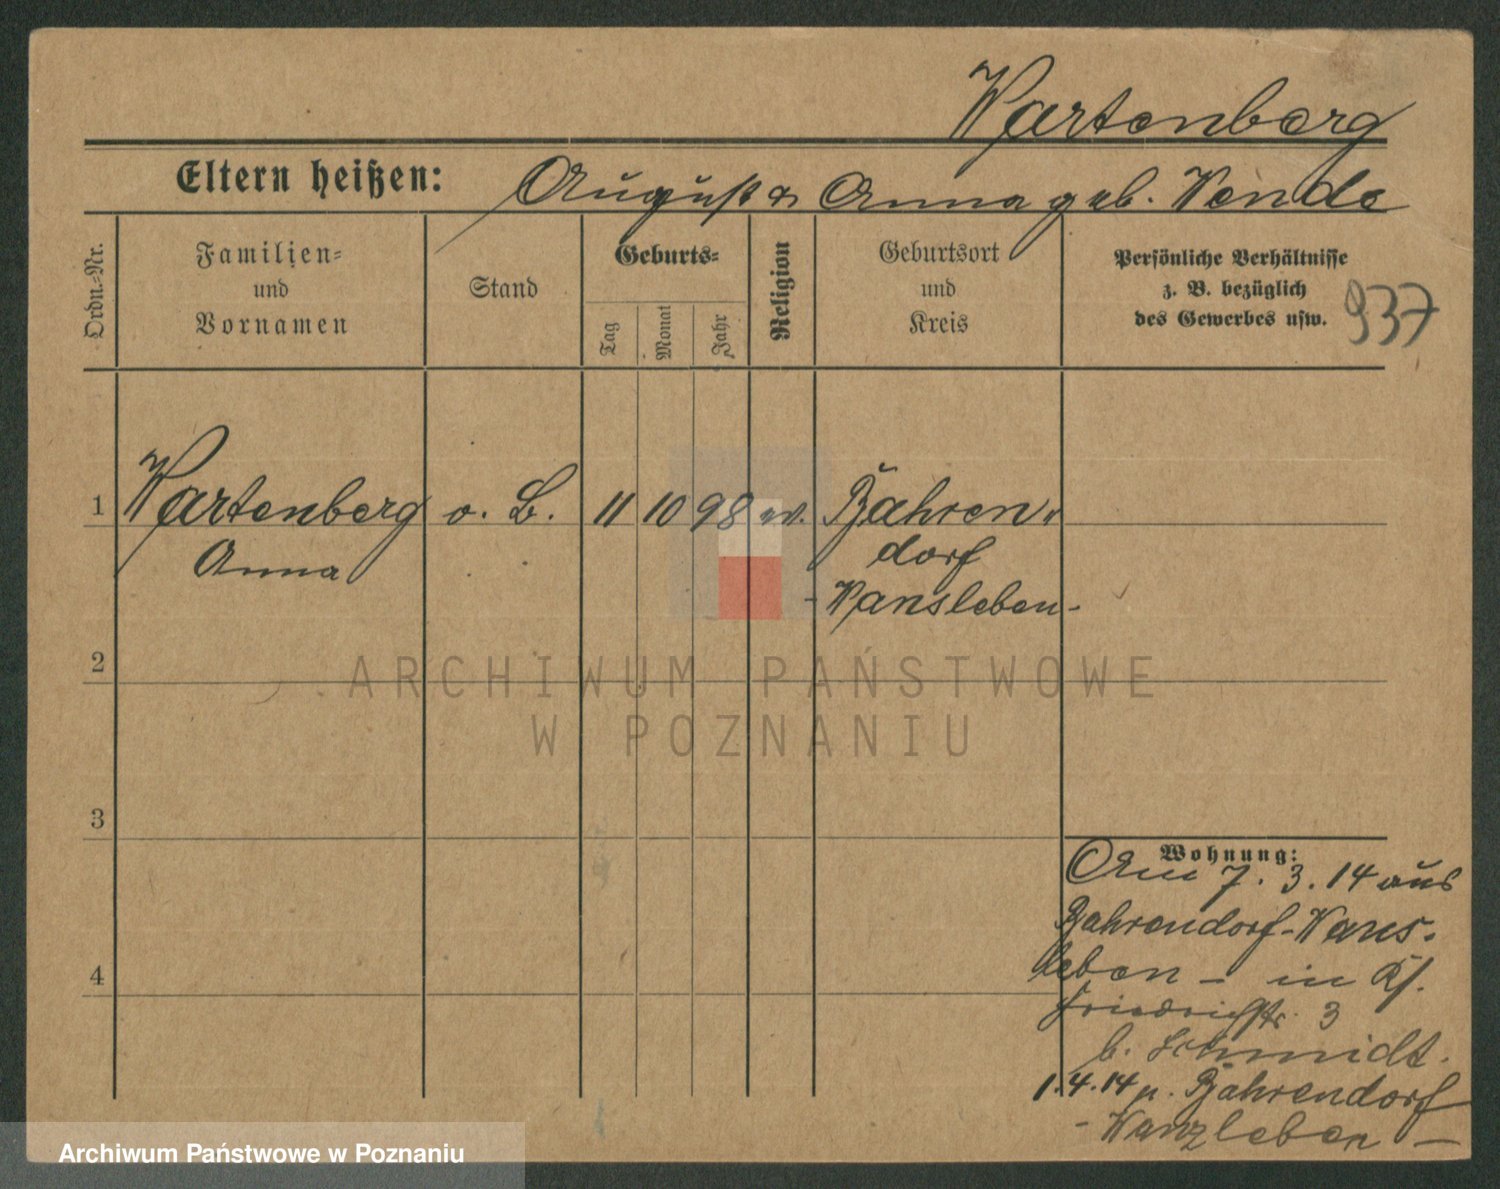 Wartenberg
Eltern heißen: August & Anna geb. Wende
Ordn.=Nr.
Familien=
und
Vornamen
Stand
Geburts=
Tag
Monat
Jahr
Religion
Geburtsort
und
Kreis
Persönliche Verhältnisse
z. B. bezüglich
des Gewerbes usw.
937
1 Wartenberg o. B. 11 10 98 ev. Bahren„
Anna dorf
- Wansleben -
2
3
4
ARCHIWUM PAŃSTWOWE
W POZNANIU
Wohnung:
Am 7. 3. 14 aus
Bahrendorf - Wans-
leben - in
Friedrichstr. 3
b. Schmidt.
1.4.14 n. Bahrendorf
- Wanzleben -
Archiwum Państwowe w Poznaniu